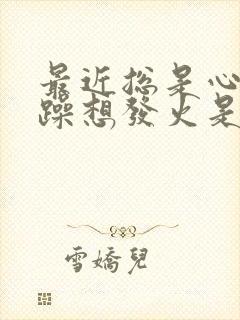 最近总是心
躁想發火是
雪嬌兒